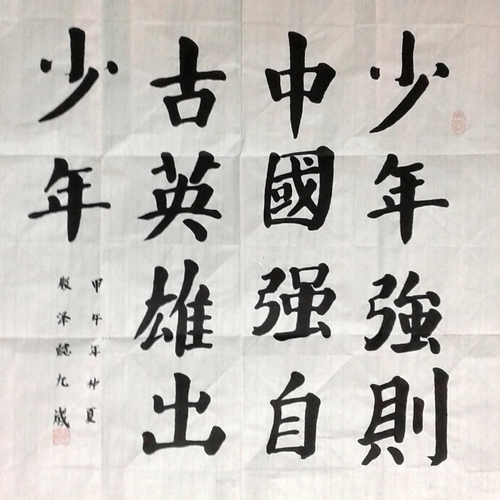 少年強則
中國强自
古英雄出
少年
甲午年仲夏
殷泽懿九歲